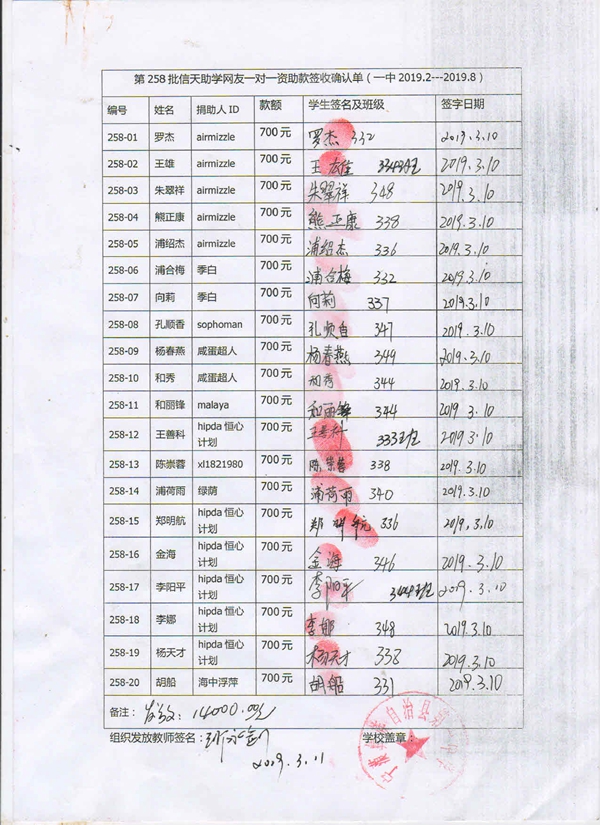 第 258 批信天助学网友一对一资助款签收确认单（一中 2019.2---2019.8）
编号 姓名 捐助人 ID 款额 学生签名及班级 签字日期
258-01 罗杰 airmizzle 700 元 罗杰 332 2019.3.10
258-02 王雄 airmizzle 700 元 王雄 334班 2019.3.10
258-03 朱翠祥 airmizzle 700 元 朱翠祥 348 2019.3.10
258-04 熊正康 airmizzle 700 元 熊正康 338 2019.3.10
258-05 浦绍杰 airmizzle 700 元 浦绍杰 336 2019.3.10
258-06 浦合梅 季白 700 元 浦合梅 332 2019.3.10
258-07 向莉 季白 700 元 向莉 337 2019.3.10
258-08 孔顺香 sophoman 700 元 孔顺香 347 2019.3.10
258-09 杨春燕 咸蛋超人 700 元 杨春燕 349 2019.3.10
258-10 和秀 咸蛋超人 700 元 和秀 344 2019.3.10
258-11 和丽锋 malaya 700 元 和丽锋 344 2019 3.10
258-12 王善科 hipda 恒心计划 700 元 王善科 333班 2019.3.10
258-13 陈崇蓉 xl1821980 700 元 陈崇蓉 338 2019.3.10
258-14 浦荷雨 绿荫 700 元 浦荷雨 340 2019.3.10
258-15 郑明航 hipda 恒心计划 700 元 郑明航 336 2019,3.10
258-16 金海 hipda 恒心计划 700 元 金海 346 2019.3.10
258-17 李阳平 hipda 恒心计划 700 元 李阳平 2019.3.10
258-18 李娜 hipda 恒心计划 700 元 李娜 348 2019.3.10
258-19 杨天才 hipda 恒心计划 700 元 杨天才 338 2019.3.10
258-20 胡船 海中浮萍 700 元 胡船 331 2019.3.10
备注： 发放：14000.00元
组织发放教师签名： 学校盖章：
2019.3.11
自治县